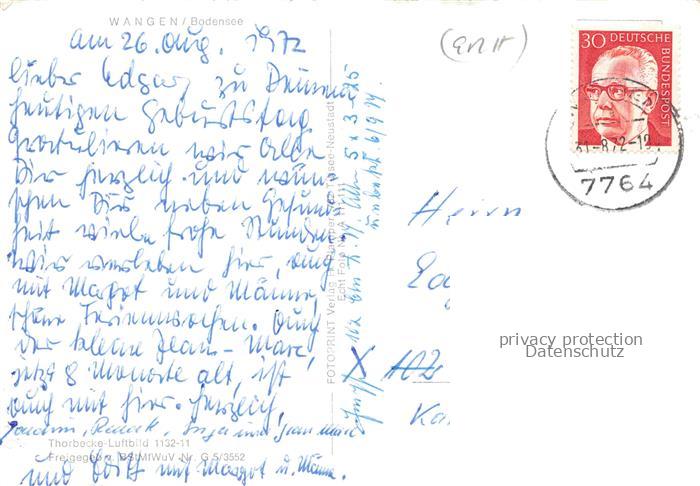 WANGEN / Bodensee
am 26. Aug. 1972
Lieber Edgar, zu Deinem
heutigen Geburtstag
gratulieren wir alle
Dir herzlich und wün-
schen Dir neben Gesund-
heit viele frohe Stunden.
Wir verleben hier, auch
mit Margot und Männe,
schöne Ferienwochen. Auch
der kleine Jean-Marc,
jetzt 8 Monate alt, ist
auch mit hier. Herzlich,
Joachim, Inga und Jean Marc
und mit Margot u. Männe.
Thorbecke-Luftbild 1132-11
Freigegeben d. BStMfWuV Nr. G 5/3552
FOTOPRINT Verlag Titisee-Neustadt
Echt Foto
30 DEUTSCHE BUNDESPOST
31.-8.72-12
7764
Herrn
Edg
102
Ka
privacy protection
Datenschutz